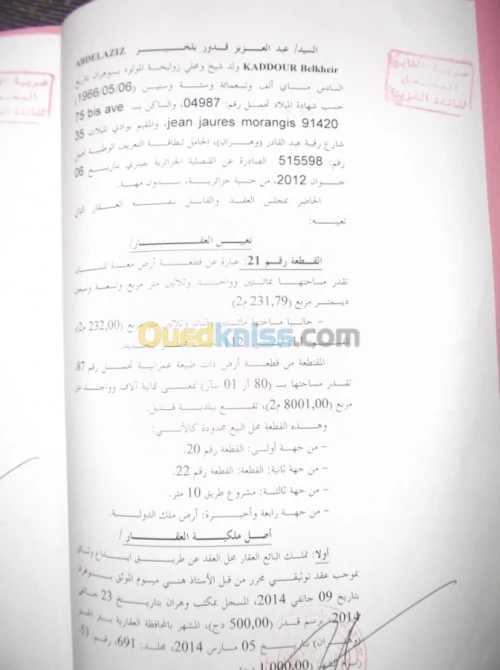 السيد/ عبد العزيز قدور بلخير ABDELAZIZ
KADDOUR Belkheir ولد شيخ وعلي زوليخة المولود بوهران بتاريخ
السادس ماي ألف وتسعمائة وستة وستين (1966/05/06)،
حسب شهادة الميلاد تحمل رقم: 04987، والساكن بـ 75 bis ave
jean jaures morangis 91420، والمقيم بوادي تليلات 35
شارع رقية عبد القادر (وهران)، الحامل لبطاقة التعريف الوطنية تحمل
رقم: 515598 الصادرة عن القنصلية الجزائرية بفيتري بتاريخ 06
جوان 2012، من جنسية جزائرية، بدون مهنة.
الحاضر بمجلس العقد والقابل بنفسه العقار التالي
تعيينه:
تعيين العقار/
القطعة رقم 21: عبارة عن قطعة أرض معدة للبناء
تقدر مساحتها بمائتين وواحد وثلاثين متر مربع وتسعة وسبعين
ديسمتر مربع (231,79 م2).
- حاليا مساحتها مائتين وثلاثين (232,00 م2)
Ouedkniss.com
المقتطعة من قطعة أرض ذات طبيعة عمرانية تحمل رقم 87
تقدر مساحتها بـ (80 آر 01 سآر) بمعنى ثمانية آلاف وواحد متر
مربع (8001,00 م2)، تقع ببلدية قديل.
وهذه القطعة محل البيع محدودة كالآتي:
- من جهة أولى: القطعة رقم 20.
- من جهة ثانية: القطعة رقم 22.
- من جهة ثالثة: مشروع طريق 10 متر.
- من جهة رابعة وأخيرة: أرض ملك الدولة.
أصل ملكية العقار/
أولا: تملك البائع العقار محل العقد عن طريق ايداع وثائق
بموجب عقد توثيقي محرر من قبل الأستاذ هني ميموم الموثق بوهران
بتاريخ 09 جانفي 2014، المسجل بمكتب وهران بتاريخ 23 جانفي
2014، برسم قدره (500,00 دج)، المشهر بالمحافظة العقارية
(وهران) بتاريخ 05 مارس 2014، مجلد: 691، رقم:
(1.000,00 دج)